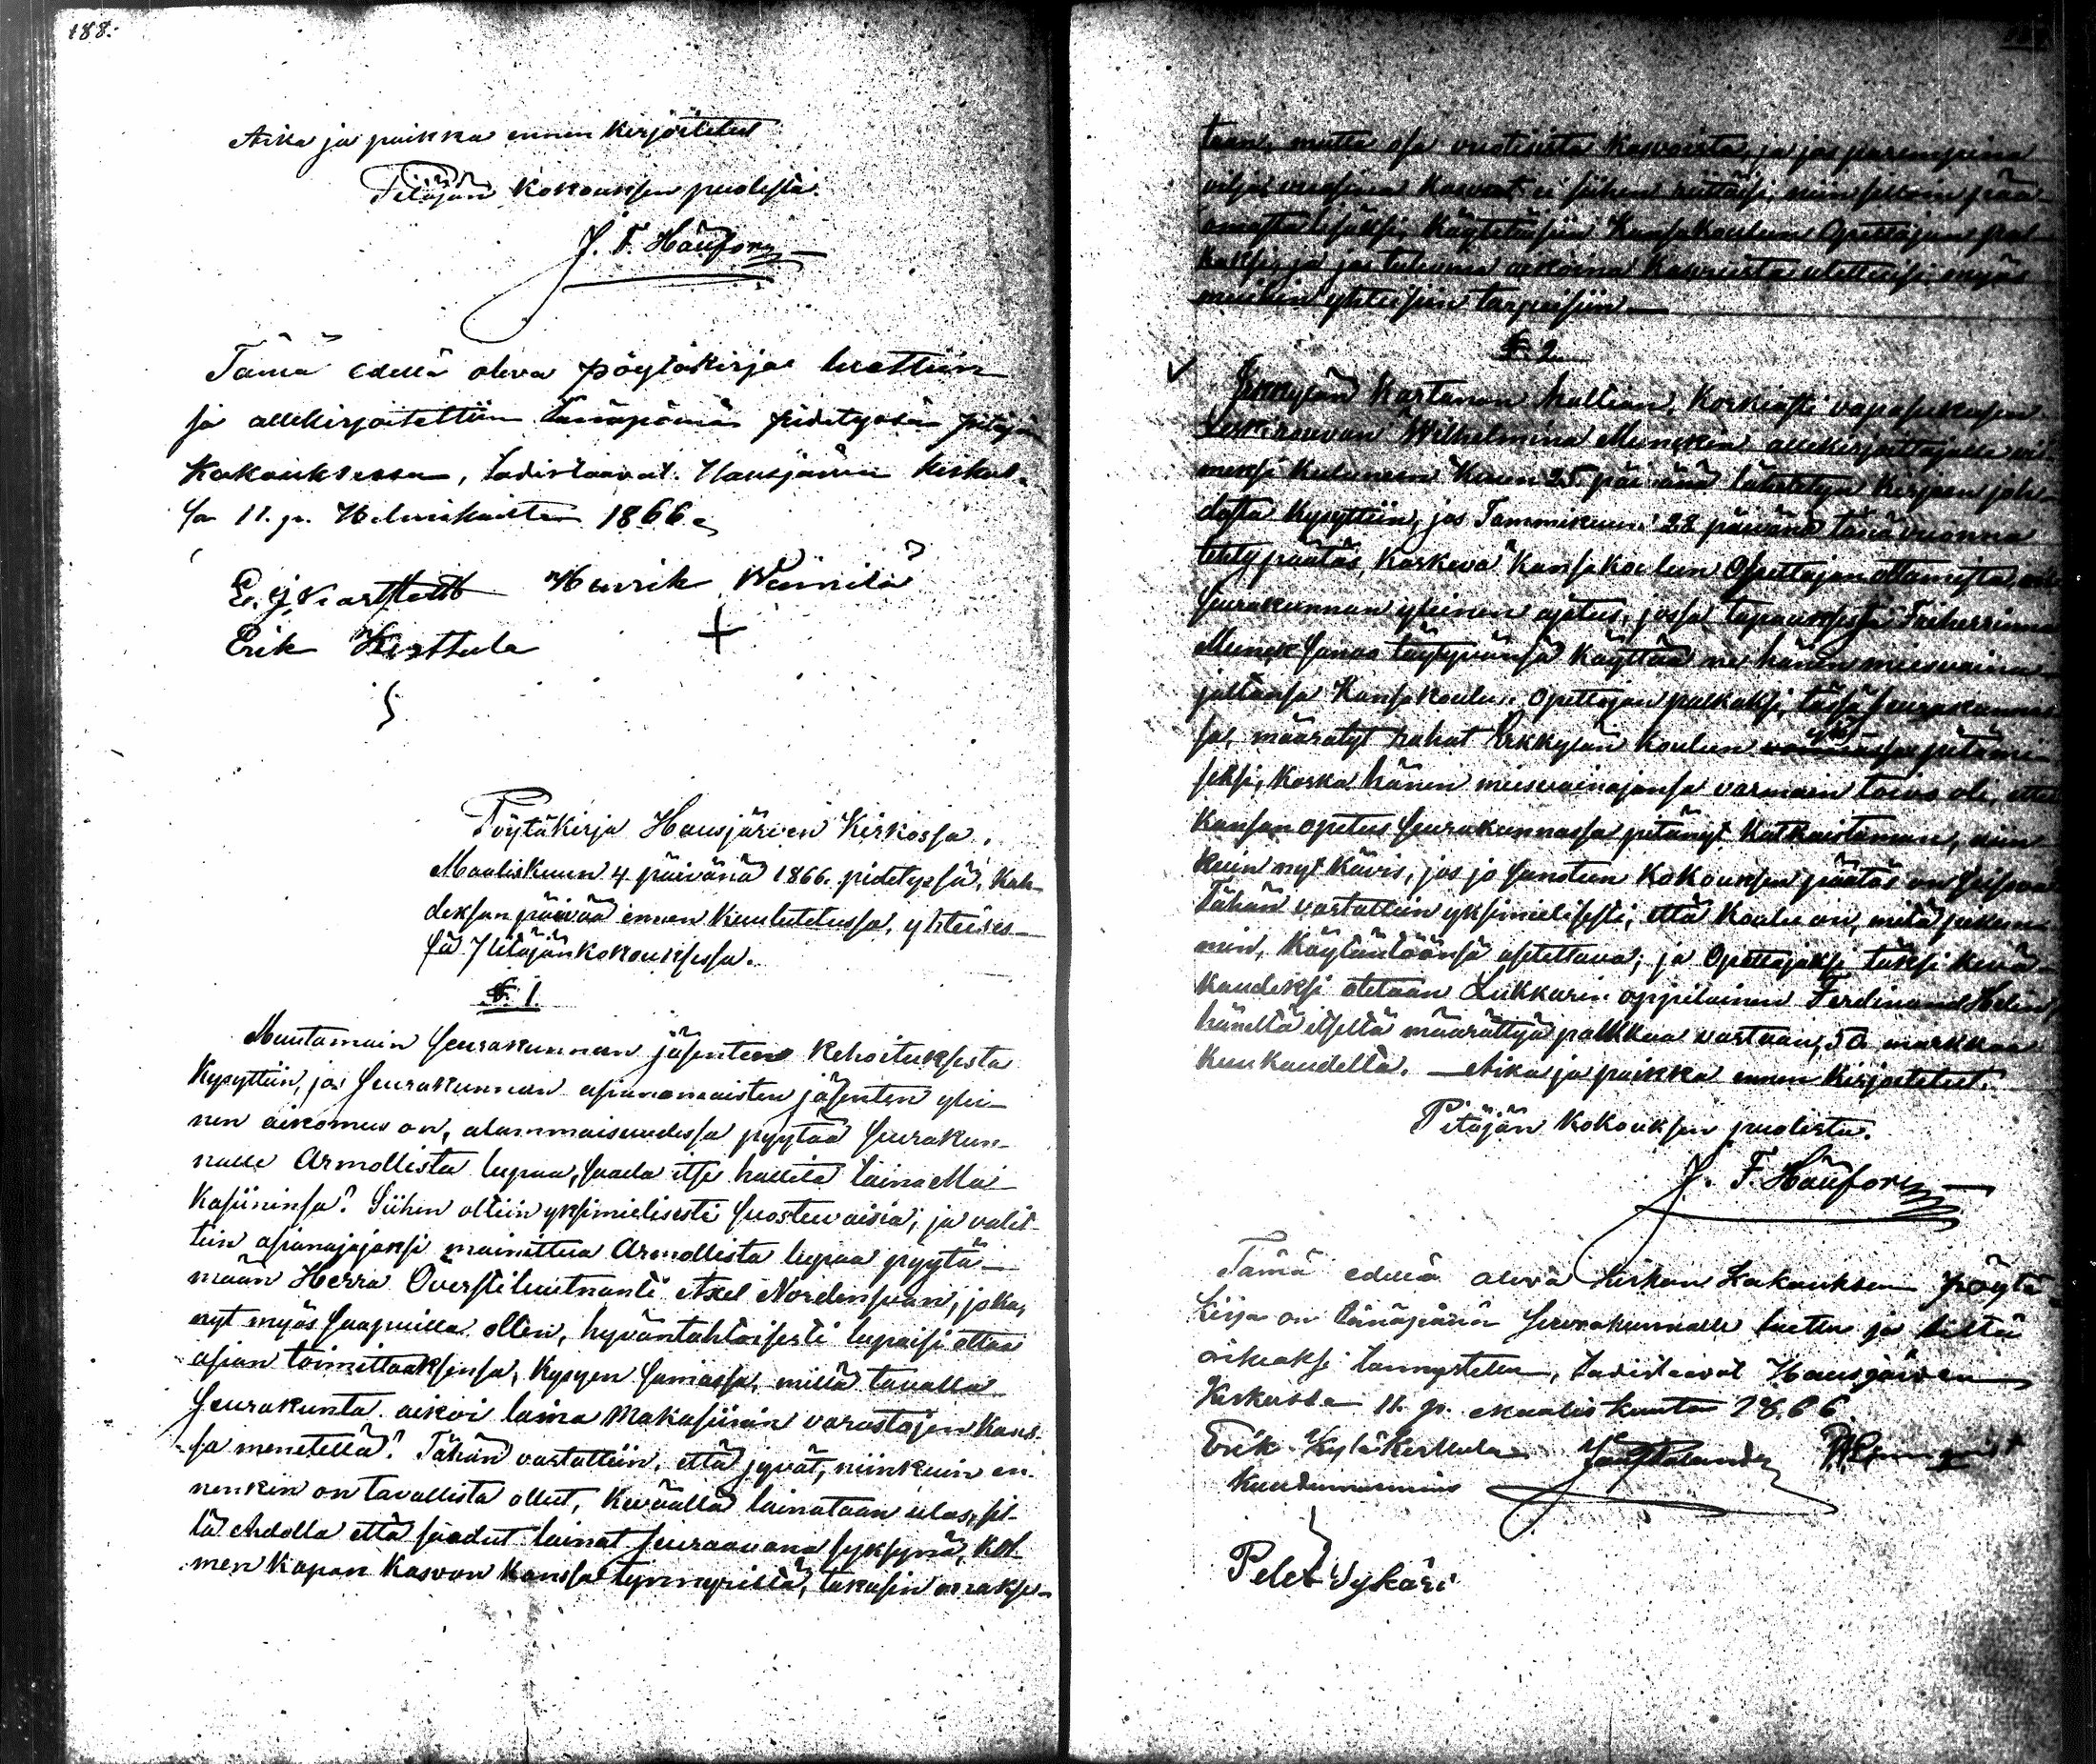 188.
Aika ja paikka ennen kirjoitetut
Pitäjän kokouksen puolesta.
J. F. Häufors
Tämä edellä oleva pöytäkirja luettiin
ja allekirjoitettiin tänäpänä pidetyssä pitäjän
Kokouksessa, todistaavat. Hausjärven kirkos-
sa 11. p. Helmikuuta 1866.
Henrik Wäinilä
Erik Kerttula
Pöytäkirja Hausjärven Kirkossa,
Maaliskuun 4 päivänä 1866. pidetyssä, kah-
deksan päivää ennen kuulutetussa, yhteises-
sä Pitäjänkokouksessa.
§ 1.
Muutamain Seurakunnan jäsenten kehoituksesta
kysyttiin, jos Seurakunnan asianomaisten jäsenten ylei-
nen aikomus on, alammaisuudessa pyytää Seurakun-
nalle Armollista lupaa, saada itse hallita laina Ma-
kasiininsa? Siihen oltiin yksimielisesti suostuvaisia; ja valit-
tiin asianajajaksi mainittua Armollista lupaa pyytä-
mään Herra Öfverstiluutnanti Axel Nordensvan, joka,
nyt myös saapuilla ollen, hyväntahtoisesti lupaisi ottaa
asian toimittaaksensa, kysyen samassa, millä tavalla
Seurakunta aikoi laina makasiinin varastojen kans-
sa menetellä? Tähän vastattiin, että jyvät, niinkuin en-
nenkin on tavallista ollut, keväällä lainataan ulos, sil-
lä ehdolla että saadut lainat seuraavana syksynä, kol-
men kapan kasvon kanssa tynnyriltä, takasin makse-
taan, mutta osa vuotisista kasvoista, ja jos parempina
vilja vuosina kasvot ei siihen riittäisi, niin silloin pää-
omasta lisäksi, käytetäisiin Kansakoulun Opettajan pal-
kaksi, ja jos tulevina aikoina kasvuista ulottuisi myös
muihin yhteisiin tarpeisiin.
§ 2.
Erkkylän Kartanon haltian, Korkiasti vapasukuisen
Leskirouvan Wilhelmina Munckin allekirjoittajalle vii-
meksi kuluneen kuun 25 päivänä lähetetyn kirjeen joh-
dosta kysyttiin, jos Tammikuun 28 päivänä tänä vuonna
tehty päätös, koskeva kansakoulun Opettajan ottamista, on
Seurakunnan yleinen ajatus, jossa tapauksessa Friherrinna
Munck sanoo täytyvänsä käyttää ne hänen miesvaina-
jaltansa Kansakoulun Opettajan palkaksi, tässä Seurakunnas-
sa, määrätyt rahat Erkkylän koulun
seksi, koska hänen miesvainajansa varmain toivo oli, että
kansan opetus Seurakunnassa pitänyt katkaistaman, niin-
kuin nyt kävis, jos jo sanotun kokouksen päätös on seisova.
Tähän vastattiin yksimielisesti, että koulu on, mitä pikem-
min, käytäntöönsä asetettava; ja Opettajaksi täksi kevä-
kaudeksi otetaan Lukkarin oppilainen Ferdinand Helin,
häneltä itseltä määrättyä palkkaa vastaan, 50 markkaa
kuukaudelta. — Aika ja paikka ennen kirjoitetut.
Pitäjän kokouksen puolesta.
J. F. Häufors
Tämä edellä oleva kirkon kokouksen pöytä-
kirja on tänäpänä Seurakunnalle luettu ja siltä
oikiaksi tunnustettu, todistaavat Hausjärven
Kirkossa 11. p. Maaliskuuta 1866.
Erik Kylä Kerttula
Kuudennusmies